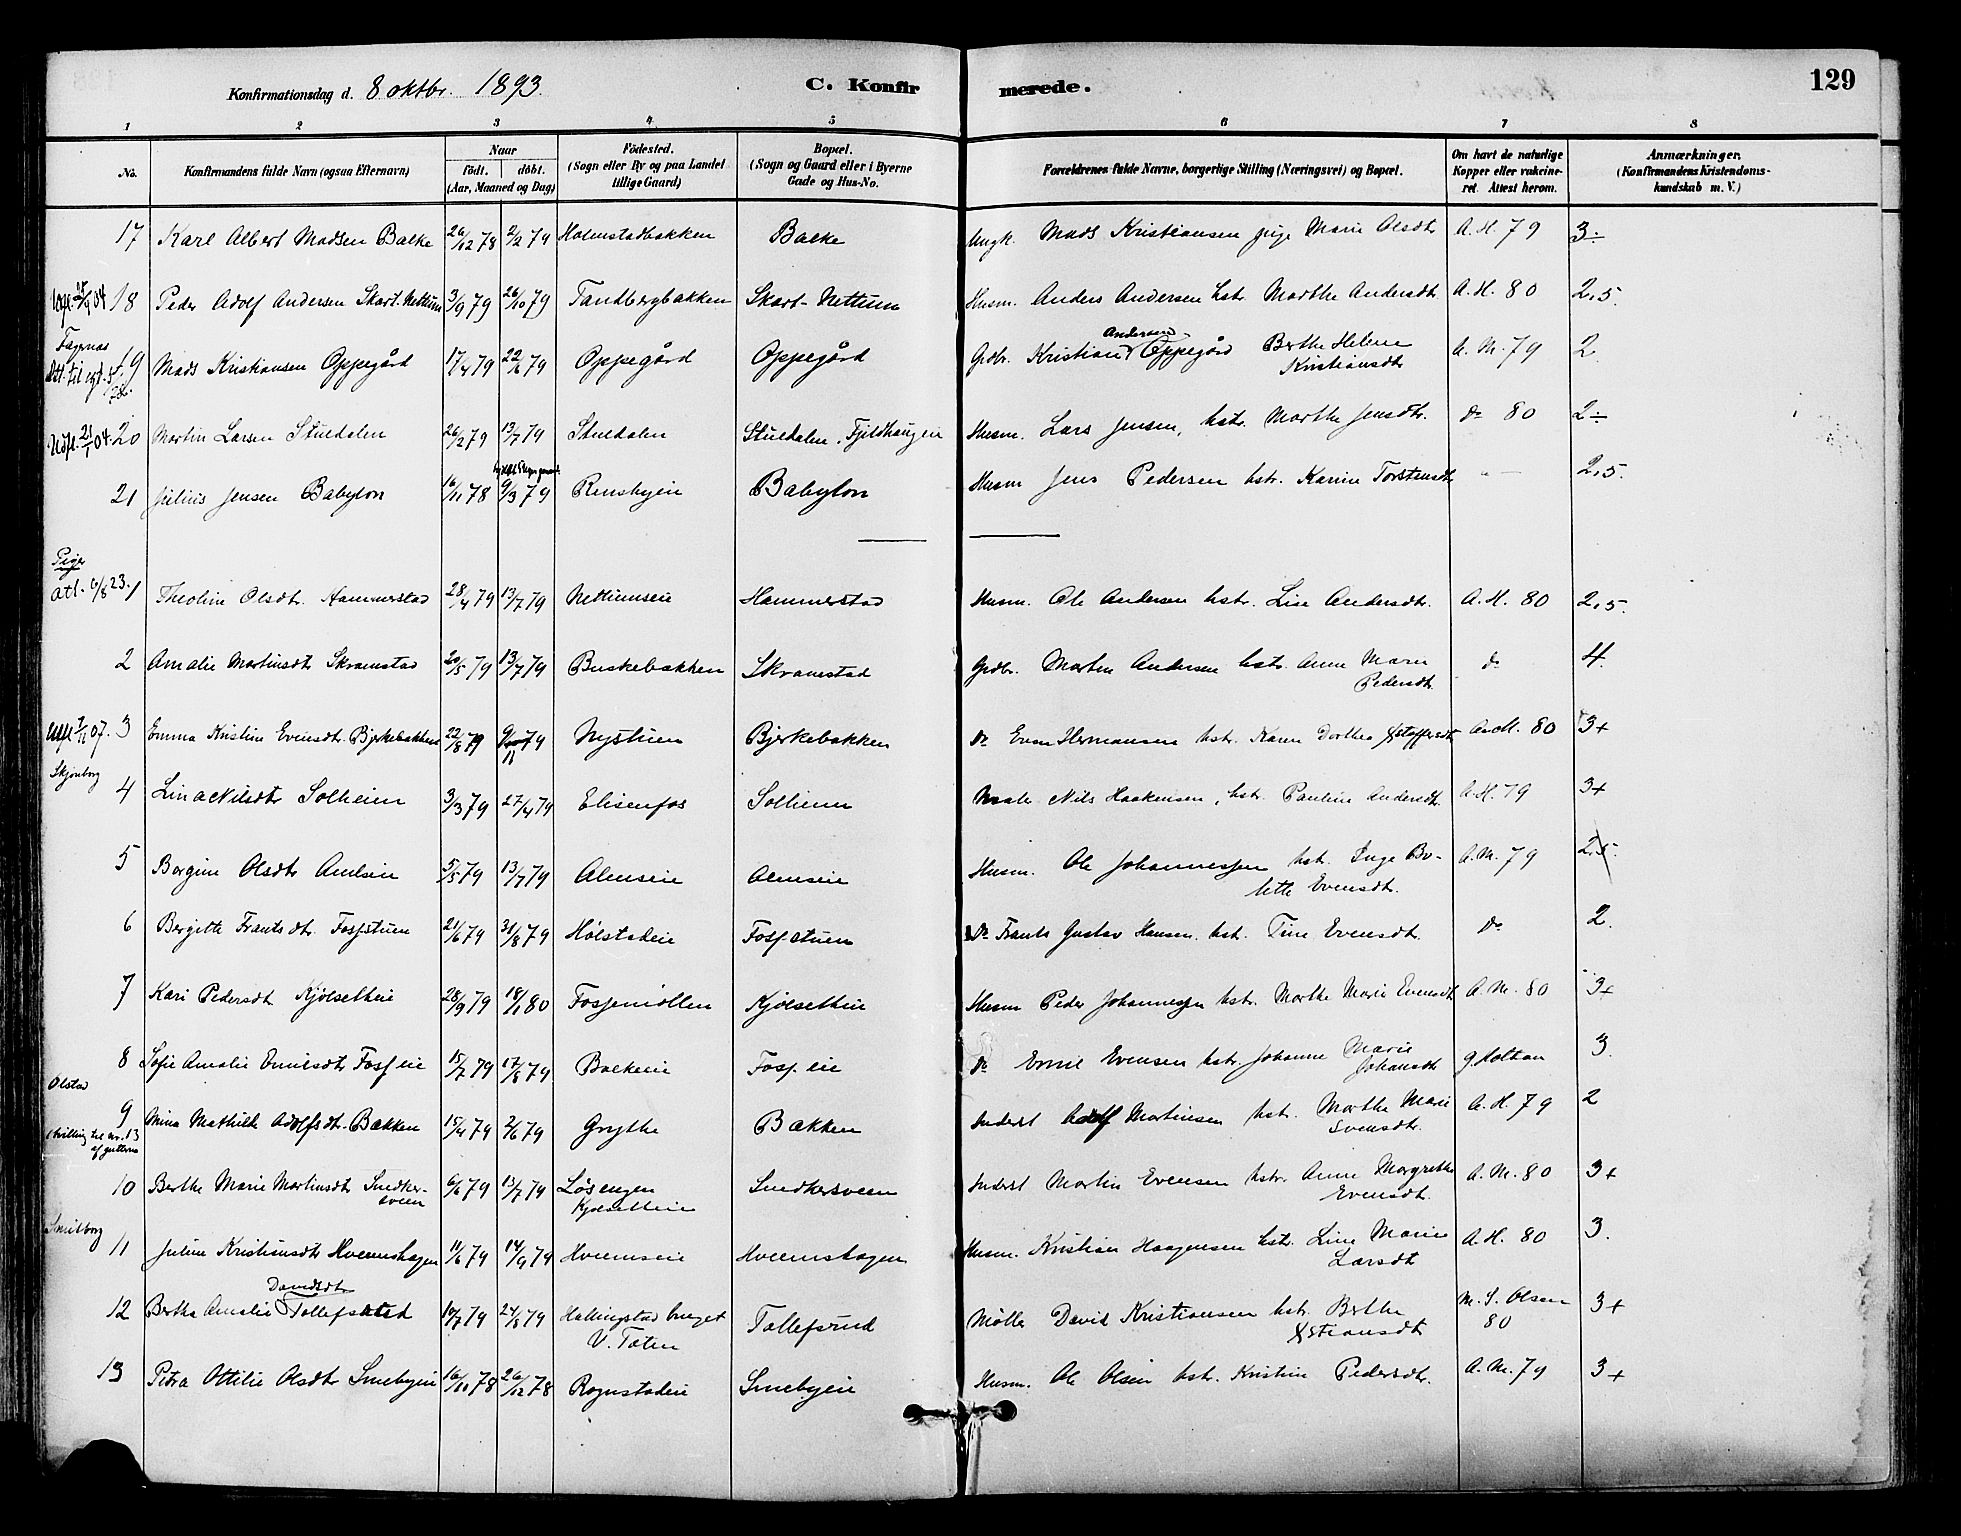 Konfirmationsdag d. 8 oktbr. 1893.
C. Konfirmerede.
129
1 2 3 4 5 6 7 8
No.
Konfirmandens fulde Navn (ogsaa Efternavn)
Naar
födt. döbt.
(Aar, Maaned og Dag)
Födested.
(Sogn eller By og paa Landet
tillige Gaard)
Bopæl.
(Sogn og Gaard eller i Byerne
Gade og Hus-No.
Forældrenes fulde Navne, borgerlige Stilling (Næringsvei) og Bopæl.
Om havt de naturlige
Kopper eller vakcine-
ret. Attest herom.
Anmærkninger.
(Konfirmandens Kristendoms-
kundskab m. V.)
17 Karl Albert Madsen Balke 26/12 78 2/2 79 Holmstadbakken Balke Ungk. Mads Kristiansen pige Marie Olsdtr A.H. 79 3÷
18 Peder Adolf Andersen Skart-Nettum 3/9 79 26/10 79 Tandbergbakken Skart-Nettum Husm. Anders Andersen hstr. Marthe Andersdtr A.H. 80 2,5.
Fagernas
19 Mads Kristiansen Oppegård 17/4 79 22/6 79 Oppegård Oppegård Grdbr. Kristian Andersen Oppegård Berthe Helene
Kristiansdtr A.M. 79 2
20 Martin Larsen Stuedalen 26/2 79 13/7 79 Stuedalen Stuedalen, Fjeldhaugen Husm. Lars Jensen, hstr. Marthe Jensdtr. do 80 2÷
21 Julius Jensen Babylon 16/11 78 9/3 79 Rensbyeie Babylon Husm Jens Pedersen hstr. Karine Torstensdtr 2,5.
Piger
Att. 6/8 23. 1 Theoline Olsdtr. Hammerstad 28/4 79 13/7 79 Nettumseie Hammerstad Husm. Ole Andersen hstr. Lise Andersdtr. A.H. 80 2,5.
2 Amalie Martinsdtr Skramstad 20/5 79 13/7 79 Buskebakken Skramstad Grdbr. Martin Andersen hstr. Anne Marie
Pedersdtr. do 4.
3 Emma Kristine Evensdtr. Bjerkebakken 22/8 79 9/11 79 Nystuen Bjerkebakken Do Even Hermansen hstr. Karen Dorthea Xstoffersdtr A.M. 80 3+
Skjønborg
4 Lina Nilsdtr Solheim 3/3 79 27/4 79 Elisenfos Solheim Nils Haakensen, hstr. Pauline Andersdtr. A.H. 79 3+
5 Borgine Olsdtr Amlseie 5/5 79 13/7 79 Almseie Almseie Husm. Ole Johannessen hstr. Inge Bo-
lette Evensdtr. A.M. 79 2,5.
6 Bergitte Frantsdtr. Fossstuen 21/6 79 31/8 79 Hølstadeie Fossstuen Do Frants Gustav Hansen. hstr. Tine Evensdtr. do 2.
7 Kari Pedersdtr Kjølsetheie 28/9 79 18/1 80 Fossemöllen Kjølsetheie Husm Peder Johannessen hstr. Marthe Marie Evensdtr A.M. 80 3+
8 Sofie Amalie Emilsdtr Fosseie 15/7 79 17/8 79 Balkeie Fosseie Do Emil Evensen hstr. Johanne Marie
Johansdtr g. Kolthau 3.
Olstad
9 Mina Mathilde Adolfsdtr. Bakken 15/4 79 2/6 79 Grythe Bakken Inderst Adolf Martinsen hstr. Marthe Marie
Svensdtr. A.H. 79 2
tvilling til nr. 13
af gutterne
10 Berthe Marie Martinsdtr Snedker-
sveen 6/6 79 13/7 79 Løsengen
Kjølsetheie Snedkersveen Inderst Martin Evensen hstr. Anne Margrethe
Evensdtr. A.M. 80 3+
Smilborg
11 Juline Kristiansdtr Hveemshagen 11/6 79 14/9 79 Hveemseie Hveemshagen Husm. Kristian Haagensen hstr. Line Marie
Larsdtr A.H. 80 3.
Davidsdtr
12 Berthe Amalie Tollefsrud 10/7 79 24/8 79 Hallingstad bruget
V. Toten Tollefsrud Møller David Kristiansen hstr. Berthe
Xstiansdtr M. S. Olsen
80 3+
13 Petra Ottilie Olsdtr Smebyeie 16/10 78 26/12 78 Rognstadeie Smebyeie Husm. Ole Olsen hstr. Kristine Pedersdtr. A.M. 79 3+